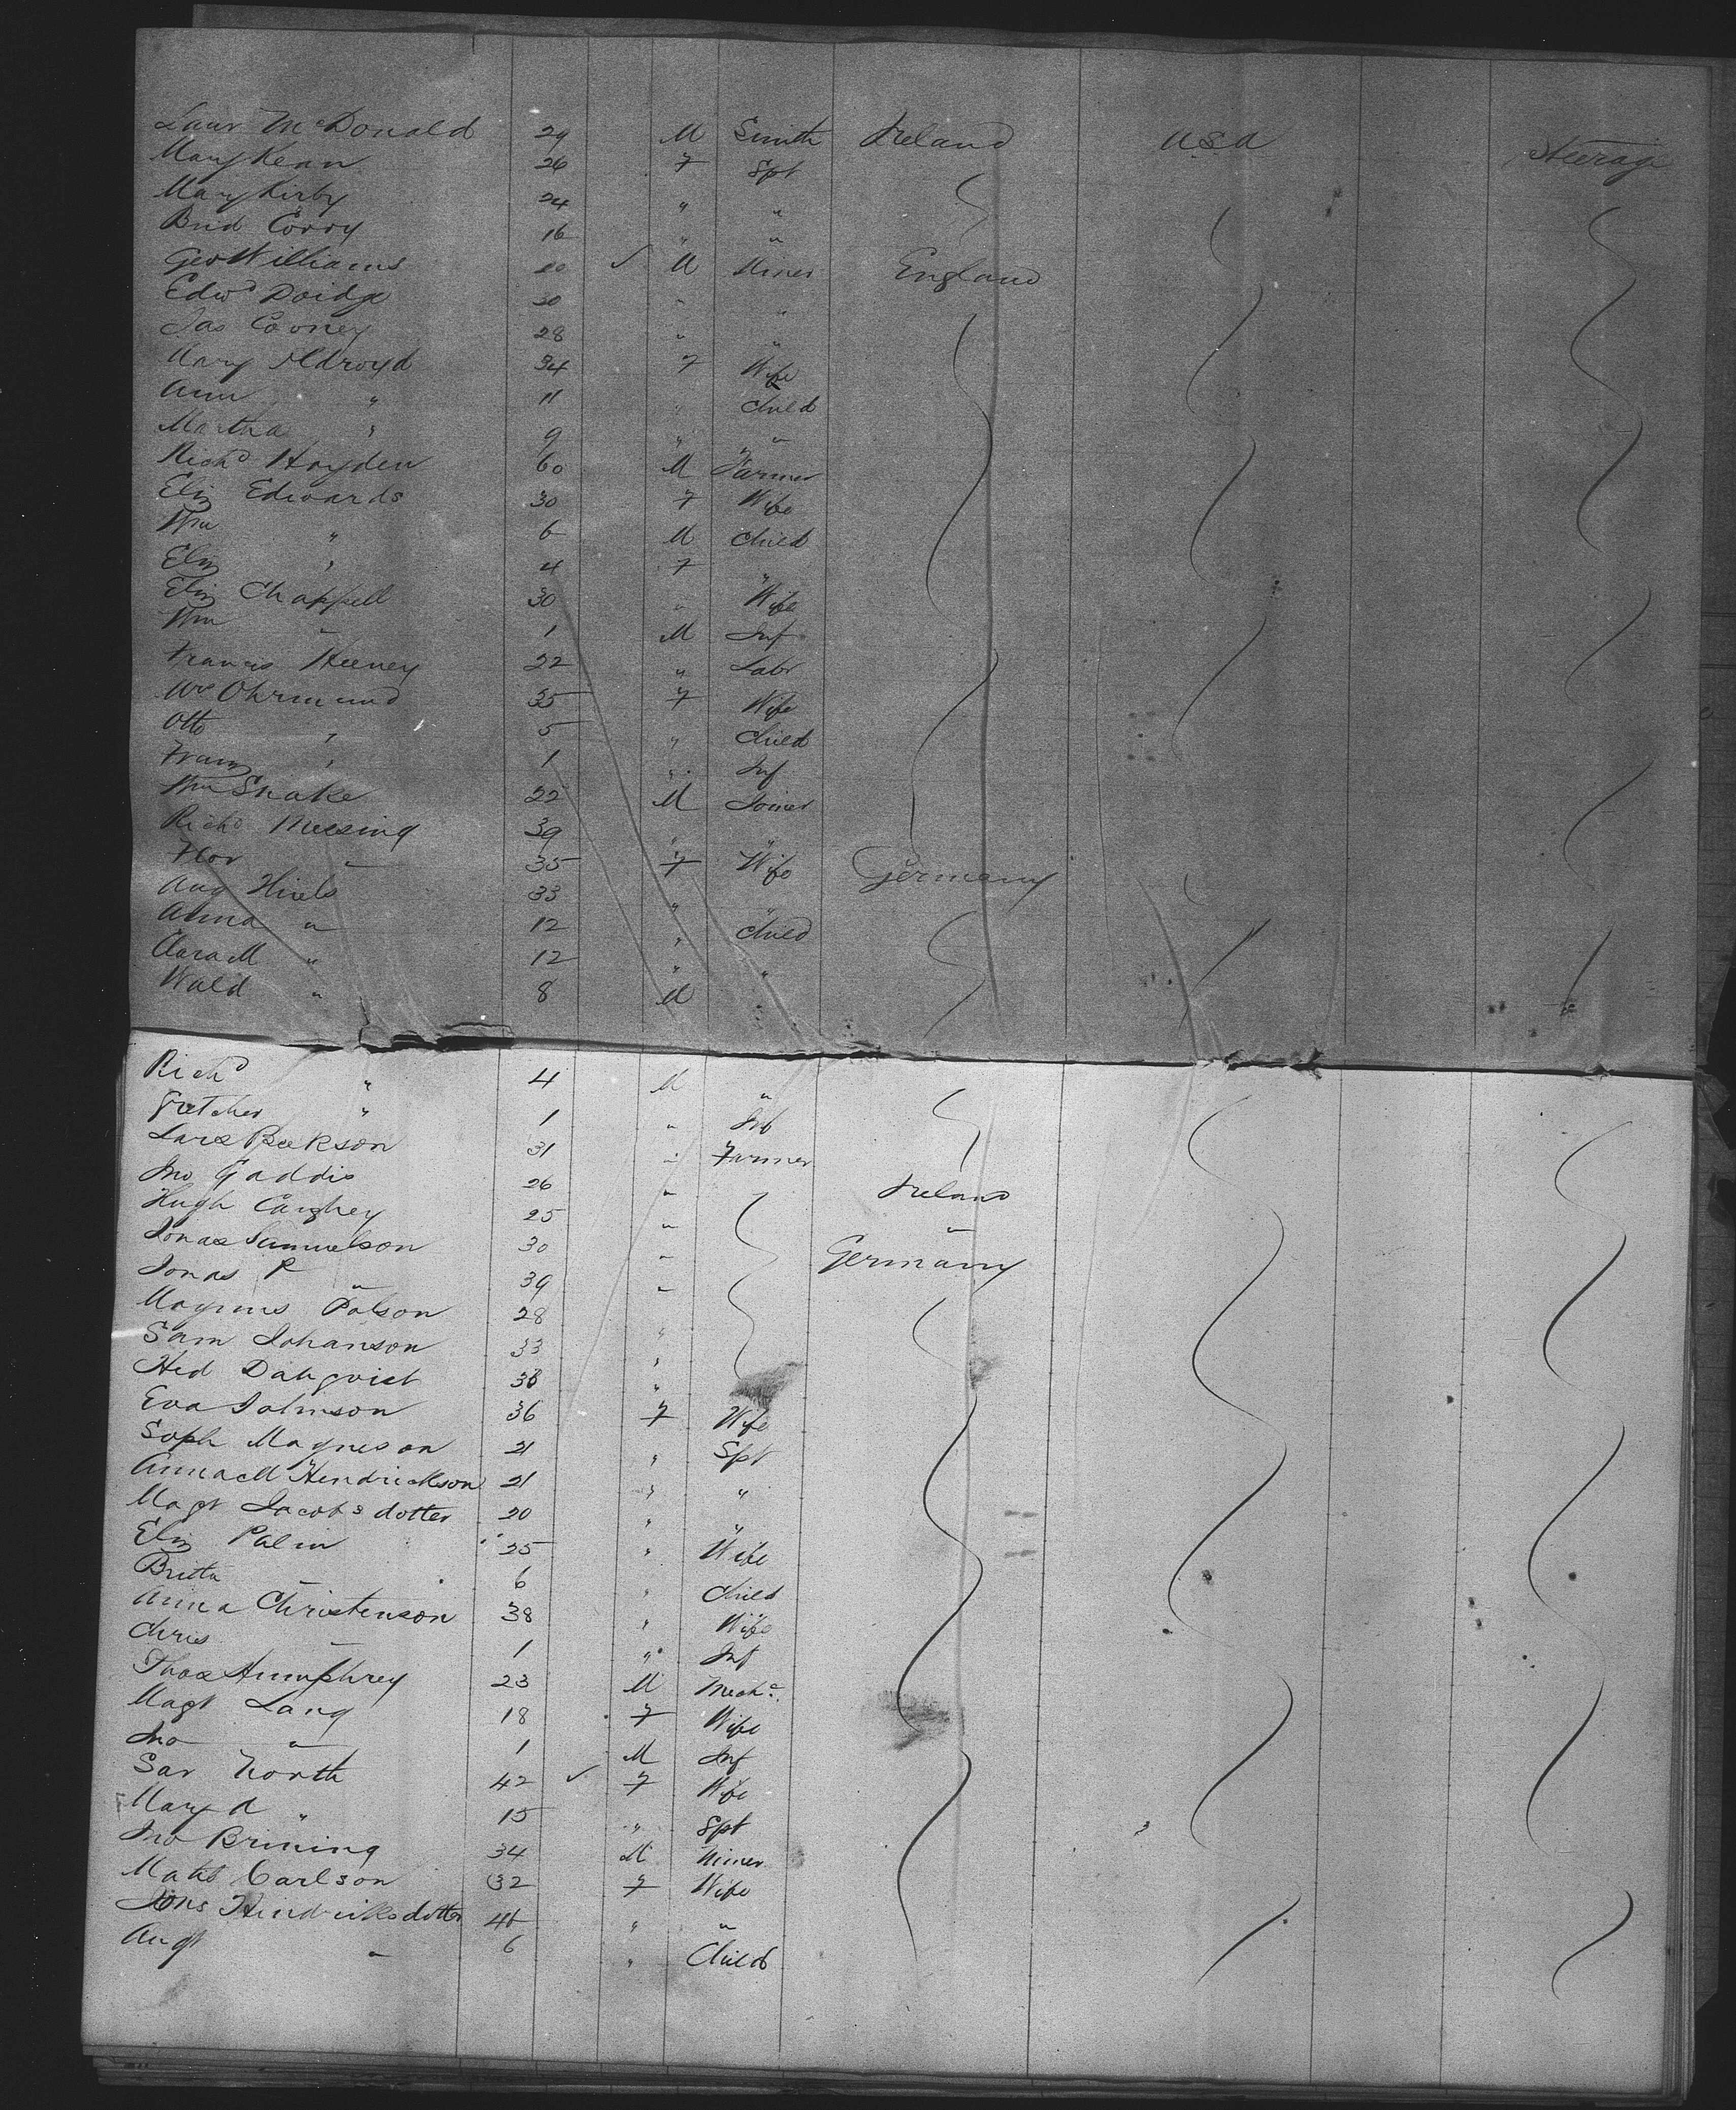 Laur McDonald 29 M Smith Ireland USA Steerage
Mary Kean 26 F Spt
Mary Kirby 24 " "
Brid Corry 16 " "
Geo Williams 20 ✓ M Miner England
Edwd Doidge 30 " "
Jas Cooney 28 " "
Mary Oldroyd 34 F Wife
Ann " 11 " Child
Martha " 9 " "
Richd Hayden 60 M Farmer
Eliz Edwards 30 F Wife
Wm " 6 M Child
Eliz " 4 F "
Eliz Chappell 30 " Wife
Wm " 1 M Inf
Francis Heeney 22 " Labr
We Ohrmund 35 F Wife
Otto " 5 " Child
Franz " 1 " Inf
Wm Snake 22 M Joiner
Richd Messing 39 " "
Flor " 35 F Wife Germany
Aug Hiels 33 " "
Anna " 12 " Child
Clara M " 12 " "
Wald " 8 M "
Richd " 4 M "
" 1 " Inf
Lars 31 " Farmer
Jno Gaddis 26 " Ireland
Hugh Caughey 25 " "
Jonas Samuelson 30 " Germany
Jonas P " 39 "
Magnus Polson 28 "
Sam Johanson 33 "
Hed Dahqvist 38 "
Eva Johnson 36 F Wife
Soph Magneson 21 " Spt
Anna M Hendrickson 21 " "
Magt Jacobsdotter 20 " "
Eliz Palin 25 " Wife
Britta " 6 " Child
Anna Christenson 38 " Wife
Chris " 1 " Inf
Thos Humphrey 23 M Mechc
Magt Lang 18 F Wife
Jno " 1 M Inf
Sar North 42 ✓ F Wife
Mary A " 15 " Spt
Jno Brining 34 M Miner
Matts Carlson 32 F Wife
Jons Hindriksdotter 46 " "
Augt " 6 " Child